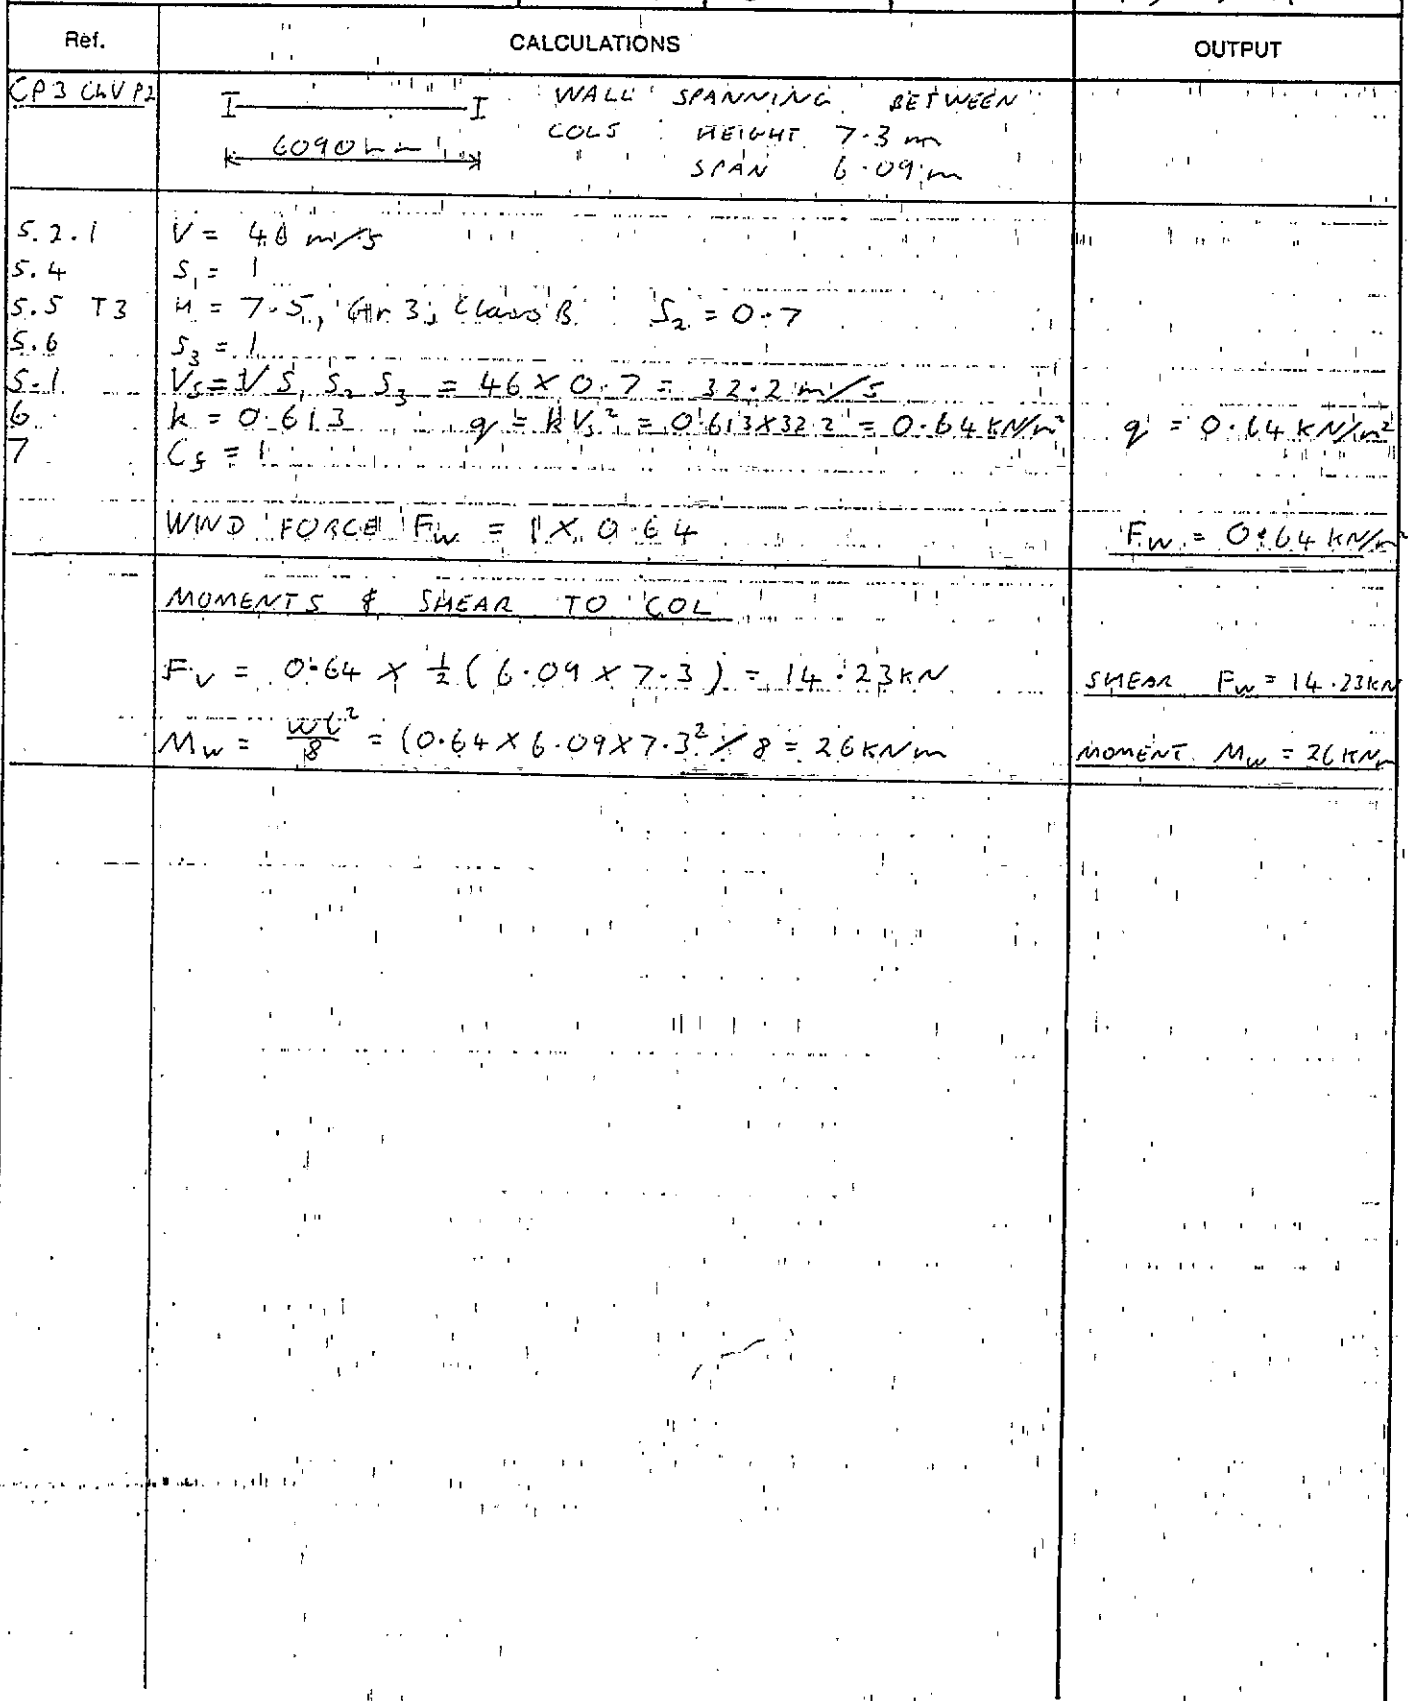 Ref. CALCULATIONS OUTPUT
CP3 ChV P2 WALL SPANNING BETWEEN
COLS HEIGHT 7.3 m
6090mm SPAN 6.09 m
5.2.1 V = 46 m/s
5.4 S1 = 1
5.5 T3 H = 7.5, Gr 3, Class B S2 = 0.7
5.6 S3 = 1
5.1 Vs = V S1 S2 S3 = 46 × 0.7 = 32.2 m/s
6 k = 0.613 q = kVs² = 0.613×32.2² = 0.64 kN/m² q = 0.64 kN/m²
7 Cf = 1
WIND FORCE Fw = 1 × 0.64 Fw = 0.64 kN/m²
MOMENTS & SHEAR TO COL
Fv = 0.64 × ½ (6.09 × 7.3) = 14.23kN SHEAR Fw = 14.23kN
Mw = wl²/8 = (0.64 × 6.09 × 7.3²) / 8 = 26 kNm MOMENT Mw = 26 kNm